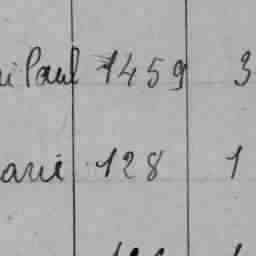 Paul 1459 3
arie 128 1